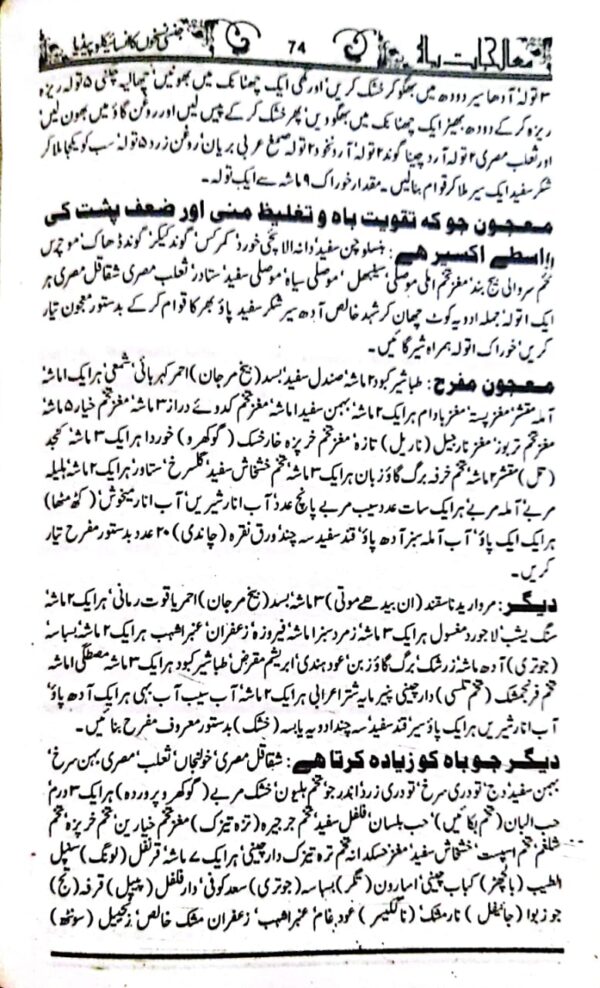 معالجات باہ
74
جنسی نسخوں کا انسائیکلوپیڈیا
۳ تولہ آدھا سیر دودھ میں بھگو کر خشک کریں اور گھی ایک چھٹانک میں بھونیں' چھالیہ چکنی ۵ تولہ ریزہ
ریزہ کر کے دودھ بھیڑ ایک چھٹانک میں بھگو دیں' پھر خشک کر کے پیس لیں اور روغن گاؤ میں بھون لیں'
اور ثعلب مصری ۲ تولہ آرد چینا گوند ۲ تولہ' آرد نخود ۲ تولہ صمغ عربی بریاں' روغن زرد ۵ تولہ' سب کو یکجا ملا کر
شکر سفید ایک سیر ملا کر قوام بنالیں۔ مقدار خوراک ۹ ماشہ سے ایک تولہ۔
معجون جو کہ تقویت باہ و تغلیظ منی اور ضعف پشت کی
واسطے اکسیر ھے: بنسلوچن سفید' دانہ الائچی خورد' کمرکس' گوند کیکر' گوند ڈھاک' موچرس
تخم سروالی' بیج بند' مغز تخم املی' موصلی سینبھل' موصلی سیاہ' موصلی سفید' ستاور' ثعلب مصری' شقاقل مصری ہر
ایک ا تولہ' جملہ ادویہ کوٹ چھان کر شہد خالص آدھ سیر' شکر سفید پاؤ بھر کا قوام کر کے بدستور معجون تیار
کریں' خوراک ا تولہ ہمراہ شیر گائیں۔
معجون مفرح: طباشیر کبود ۲ ماشہ' صندل سفید' بسد (بیخ مرجان) احمر' کہربائی شمعی' ہر ایک ا ماشہ
آملہ مقشر' مغز پستہ' مغز بادام ہر ایک ۲ ماشہ' بہمن سفید ا ماشہ' مغز تخم کدوئے دراز ۳ ماشہ' مغز تخم خیار ۵ ماشہ
مغز تخم تربوز' مغز نارجیل (ناریل) تازہ' مغز تخم خربزہ' خارخسک (گوکھرو) خوردا ہر ایک ۳ ماشہ' کنجد
(تل) مقشر ۲ ماشہ' تخم خرفہ' برگ گاؤ زبان ہر ایک ۳ ماشہ' تخم خشخاش سفید' گلسرخ' ستاور' ہر ایک ۲ ماشہ' ہلیلہ
مربے' آملہ مربے' ہر ایک سات عدد' سیب مربے پانچ عدد' آب انار شیریں' آب انار میخوش' (کھٹ مٹھا)
ہر ایک ایک پاؤ' آب آملہ سبز آدھ پاؤ' قند سفید سہ چند' ورق نقرہ (چاندی) ۲۰ عدد' بدستور مفرح تیار
کریں۔
دیگر: مروارید ناسفتہ (ان بیدھے موتی) ۳ ماشہ' بسد (بیخ مرجان) احمر' یاقوت رمانی' ہر ایک ۲ ماشہ
سنگ یشب' لاجورد مغسول' ہر ایک ۳ ماشہ' زمرد سبز ا ماشہ' فیروزہ' زعفران' عنبر اشہب' ہر ایک ۲ ماشہ' بسباسہ
(جوتری) آدھ ماشہ' زرشک' برگ گاؤ زبن' عود ہندی' ابریشم مقرض' طباشیر کبود ہر ایک ۳ ماشہ' مصطگی ا ماشہ
تخم فرنجمشک (تخم تلسی) دارچینی' پنیر مایہ شتر اعرابی ہر ایک ۲ ماشہ' آب سیب' آب بہی' ہر ایک آدھ پاؤ'
آب انار شیریں ہر ایک پاؤ سیر' قند سفید سہ چند ادویہ یابسہ (خشک) بدستور معروف مفرح بنائیں۔
دیگر جو باہ کو زیادہ کرتا ھے: شقاقل مصری' خولنجاں' ثعلب مصری' بہمن سرخ'
بہمن سفید' وج' تودری سرخ' تودری زرد' اندر جو' تخم ہلیون' خشک مربے (گوکھرو پروردہ) ہر ایک ۳ درم'
حب البان (تخم بکائیں) حب بلسان' فلفل سفید' تخم جرجیرہ (ترہ تیزک) مغز تخم خیارین' تخم خربزہ' تخم
شلغم' تخم اسپست' خشخاش سفید' مغز حسکدانہ' تخم ترہ تیزک' دارچینی' ہر ایک ۷ ماشہ' قرنفل (لونگ) سنبل
الطیب (بالچھڑ) کباب چینی' اسارون (تگر) بسباسہ (جوتری) سعد کوفی' دار فلفل (پیپل) قرفہ (تج)
جوزبوا (جائیفل) نارمشک' (ناگکیسر) عود خام' عنبر اشہب' زعفران' مشک خالص' زنجبیل (سونٹھ)